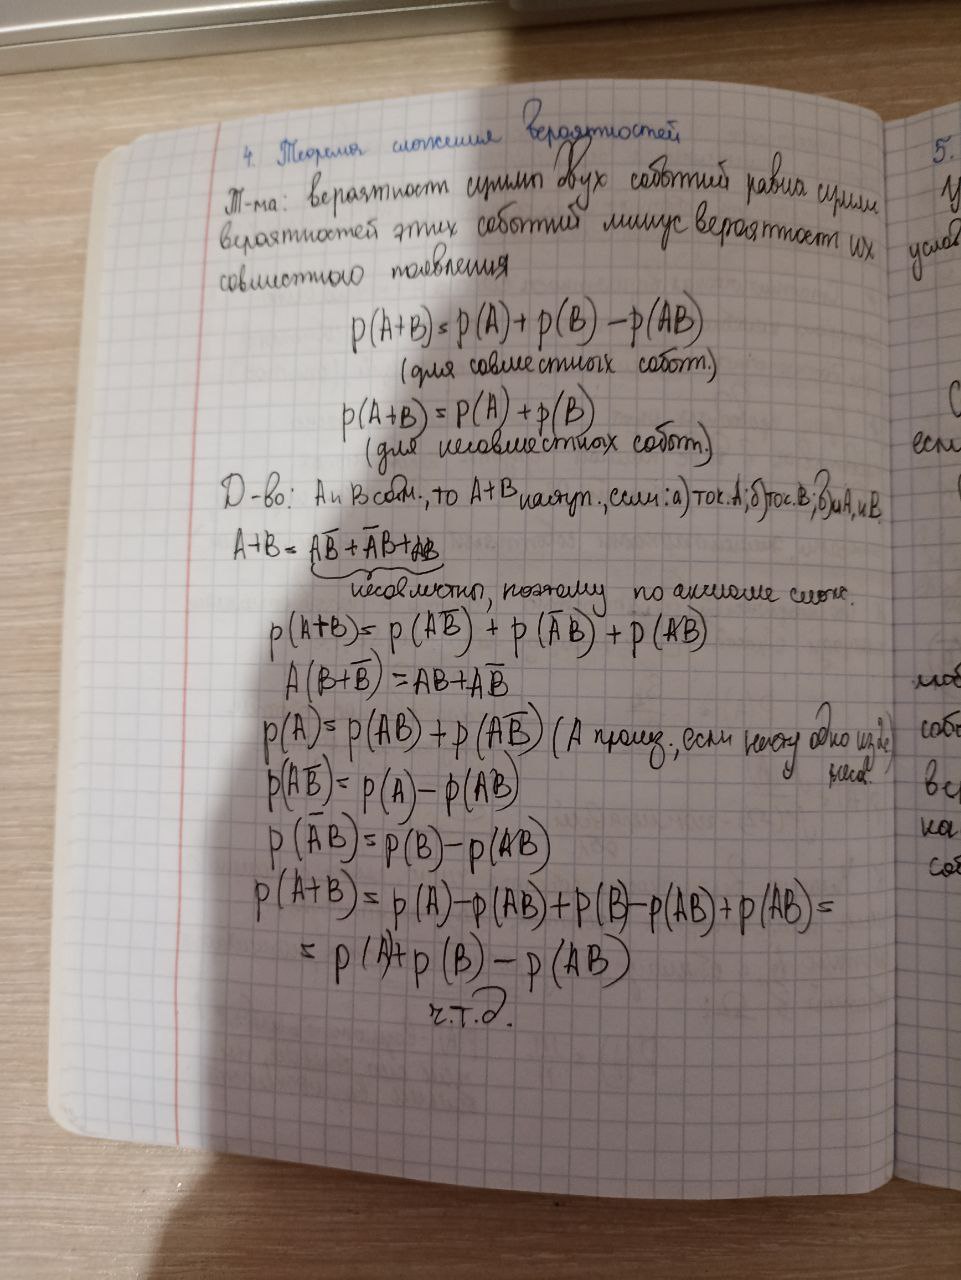 4. Теорема сложения вероятностей
Т-ма: вероятност суммы двух событий равна сумме
вероятностей этих событий минус вероятност их
совместного появления
p(A+B)=p(A)+p(B)-p(AB)
(для совместных событ.)
p(A+B)=p(A)+p(B)
(для несовместных событ.)
Д-во: A и B совм., то A+B наступ., если: а) тол. A; б) тол. B; в) и A, и B.
A+B=AB̅+A̅B+AB
несовместны, поэтому по аксиоме слож.
p(A+B)=p(AB̅)+p(A̅B)+p(AB)
A(B+B̅)=AB+AB̅
p(A)=p(AB)+p(AB̅) (A произ., если одно из 2х
несов.
p(AB̅)=p(A)-p(AB)
p(A̅B)=p(B)-p(AB)
p(A+B)=p(A)-p(AB)+p(B)-p(AB)+p(AB)=
=p(A)+p(B)-p(AB)
ч.т.д.
5.
У
услов
С
если
моб
соб
вер
ка
соб